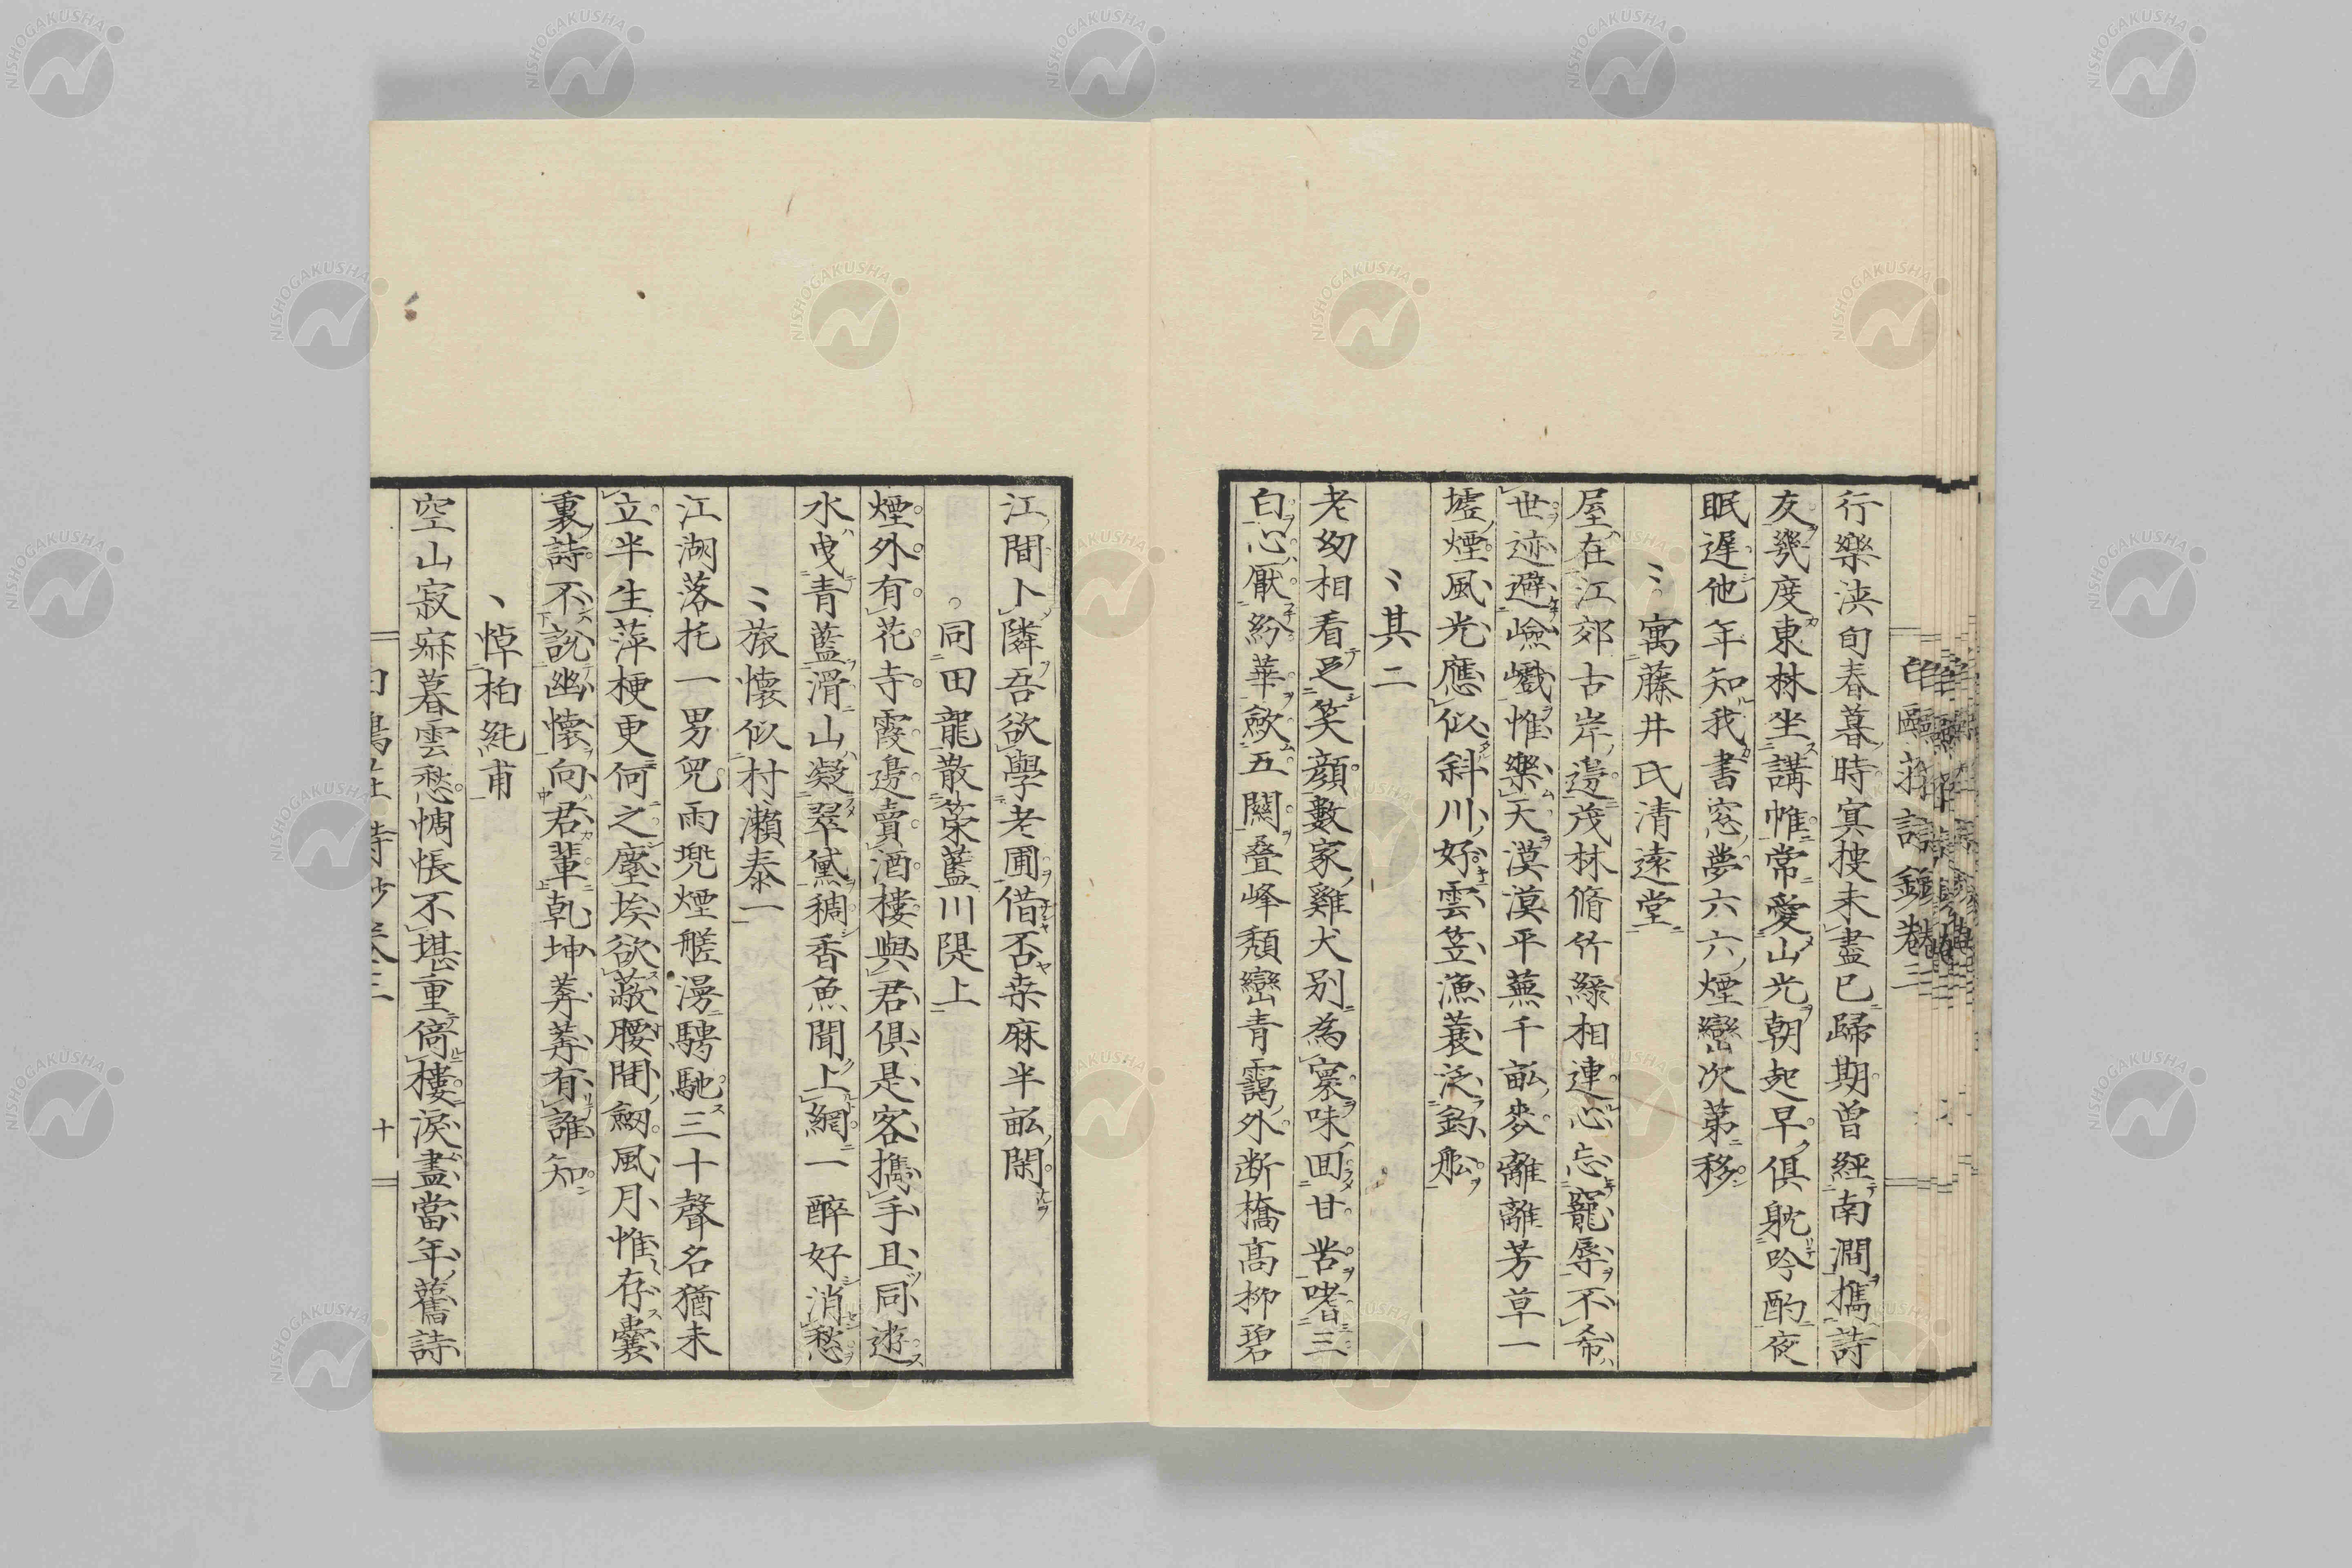 行樂浹旬春暮時寅搜未盡已歸期曽經南澗攜詩
友幾度東林坐講帷常愛山光朝起早俱躭吟酌夜
眠遅他年知我書窓夢六六煙巒次第移
寓藤井氏清遠堂
屋在江郊古岸邊茂林脩竹緑相連心忘寵辱不希
世迹避嶮巇惟樂天漠漠平蕪千畝麥離離芳草一
墟煙風光應似斜川好雲笠漁蓑泛釣舩
其二
老幼相看足笑顔數家雞犬別為寰味回甘苦嗜三
白心厭紛華歛五關叠峰頽巒青靄外断橋髙柳碧
江間卜隣吾欲學老圃借否桒麻半畝閑
同田龍散䇿藍川隄上
煙外有花寺霞邊賣酒樓與君俱是客攜手且同遊
水曳青藍滑山凝翠黛稠香魚聞上網一醉好消愁
旅懷似村瀨泰一
江湖落托一男兒雨兠煙艖漫騁馳三十聲名猶未
立半生萍梗更何之塵埃欲蔽腰間劒風月惟存囊
裏詩不説幽懷向君軰乹坤莽莽有誰知
悼柏純甫
空山寂寂暮雲愁惆悵不堪重倚樓淚盡當年舊詩
十
NISHOGAKUSHA